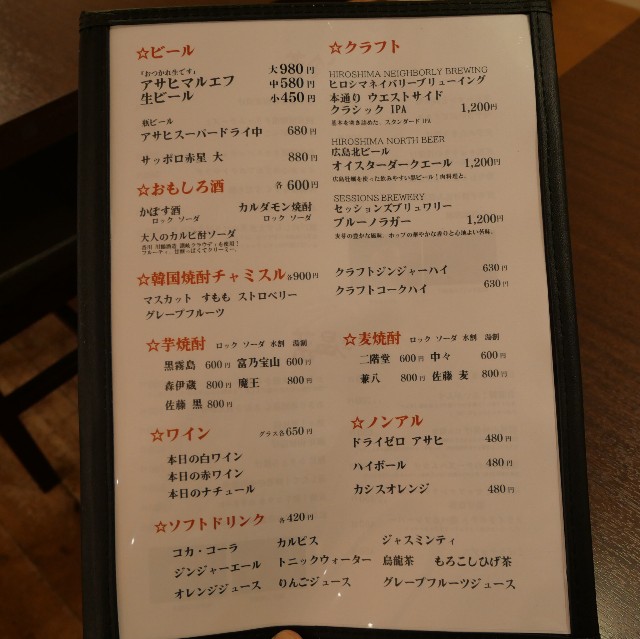 ☆ビール
「おつかれ生です」
アサヒマルエフ 大980円
生ビール 中580円
小450円
瓶ビール
アサヒスーパードライ中 680円
サッポロ赤星 大 880円
☆おもしろ酒 各600円
かぼす酒 カルダモン焼酎
ロック ソーダ ロック ソーダ
大人のカルピ酎ソーダ
☆韓国焼酎チャミスル 各900円
マスカット すもも ストロベリー
グレープフルーツ
☆芋焼酎 ロック ソーダ 水割 湯割
黒霧島 600円 富乃宝山 600円
森伊蔵 800円 魔王 800円
佐藤 黒 800円
☆ワイン グラス各650円
本日の白ワイン
本日の赤ワイン
本日のナチュール
☆クラフト
HIROSHIMA NEIGHBORLY BREWING
ヒロシマネイバリーブリューイング
本通り ウエストサイド
クラシック IPA 1,200円
基本を突き詰めた、スタンダード IPA
HIROSHIMA NORTH BEER
広島北ビール
オイスターダークエール 1,200円
広島牡蠣を使った飲みやすい黒ビール！肉料理と。
SESSIONS BREWERY
セッションズブリュワリー
ブルーノラガー 1,200円
麦芽の豊かな風味、ホップの華やかな香りと心地よい苦味。
クラフトジンジャーハイ 630円
クラフトコークハイ 630円
☆麦焼酎 ロック ソーダ 水割 湯割
二階堂 600円 中々 600円
兼八 800円 佐藤 麦 800円
☆ノンアル
ドライゼロ アサヒ 480円
ハイボール 480円
カシスオレンジ 480円
☆ソフトドリンク 各420円
コカ・コーラ カルピス ジャスミンティ
ジンジャーエール トニックウォーター 烏龍茶 もろこしひげ茶
オレンジジュース りんごジュース グレープフルーツジュース